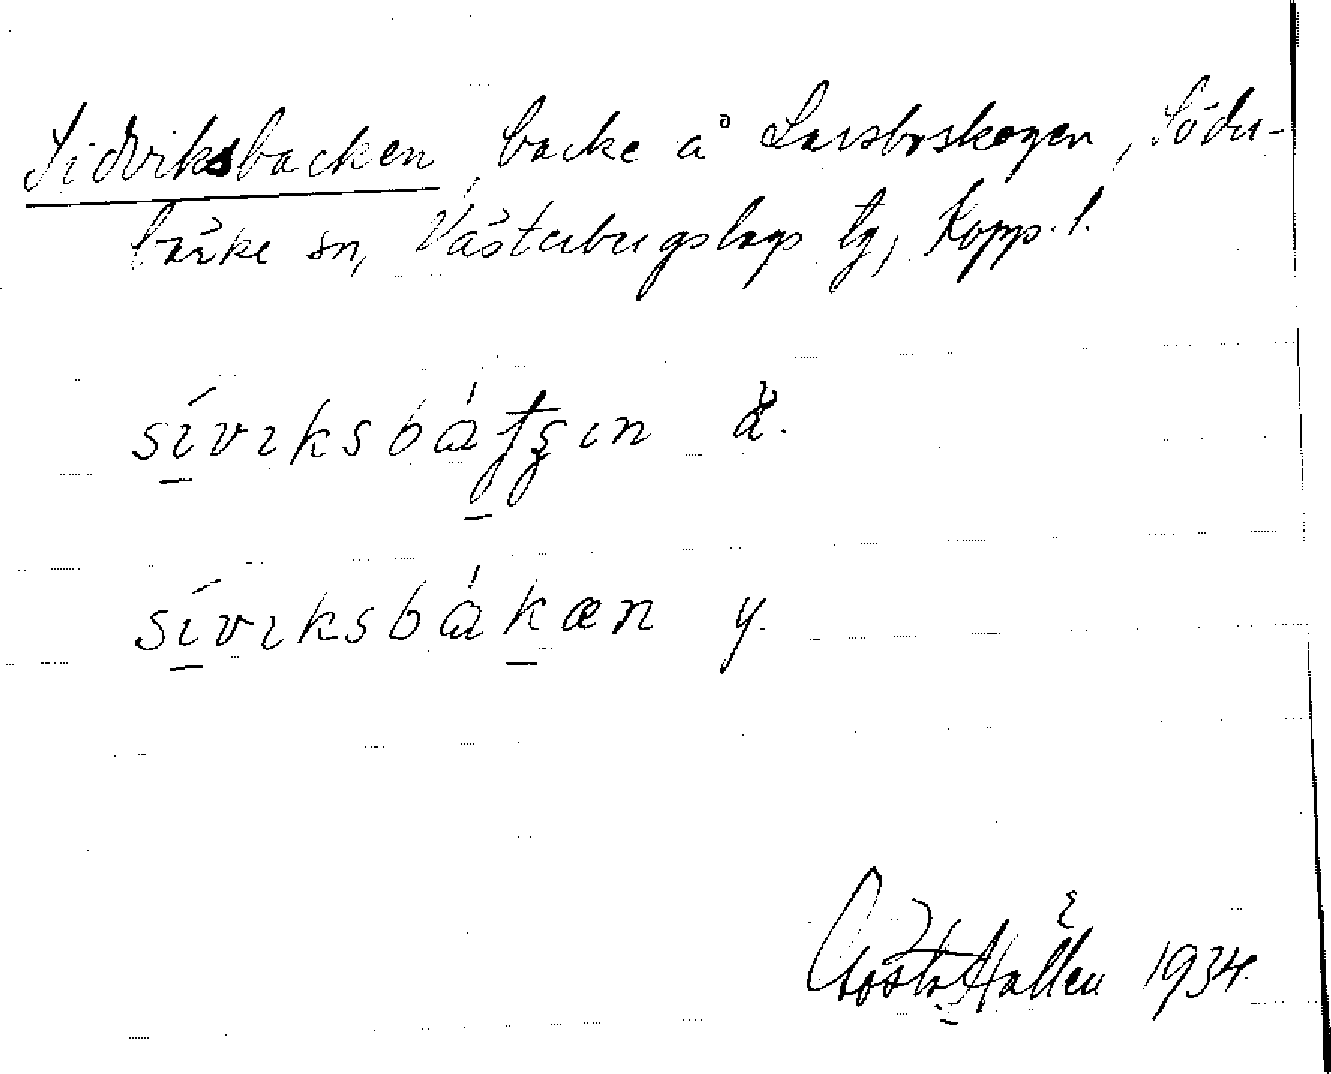 Sidviksbacken, backe å Larsboskogen, Söder-
bärke sn, Västerbergslags tg, Kopp. l.
sívιksbátʂιn ä.
sívιksbákæn y.
Gösta Hallén 1934.